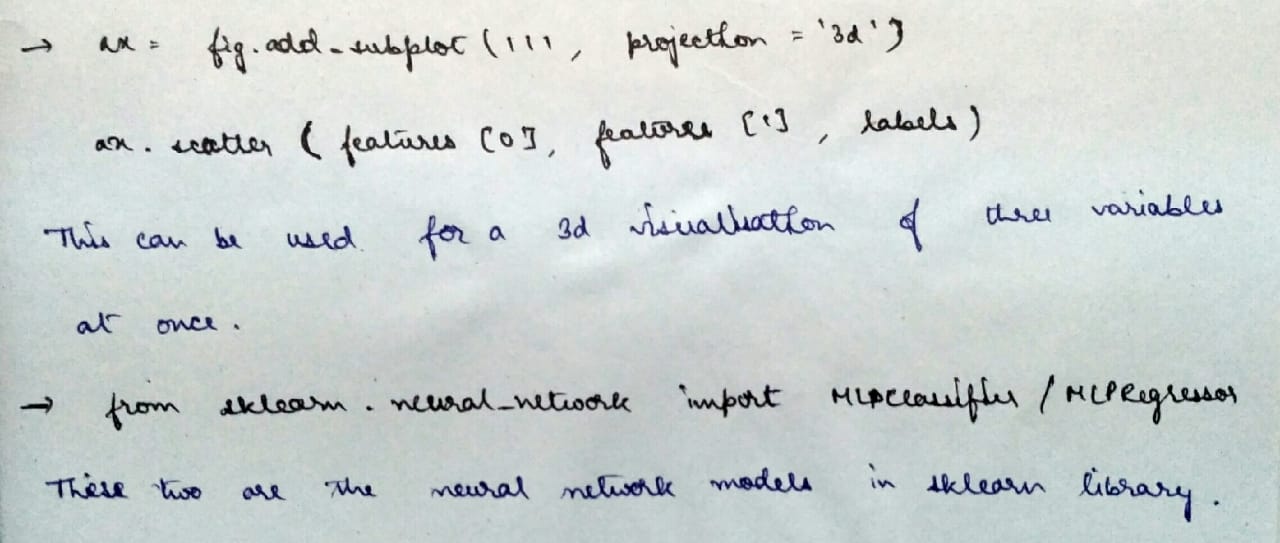 → ax = fig.add_subplot (111, projection = '3d')
ax. scatter ( features [0], features [1] , labels )
This can be used for a 3d visualisation of three variables
at once.
→ from sklearn . neural_network import MLPClassifier / MLPRegressor
These two are the neural network models in sklearn library.